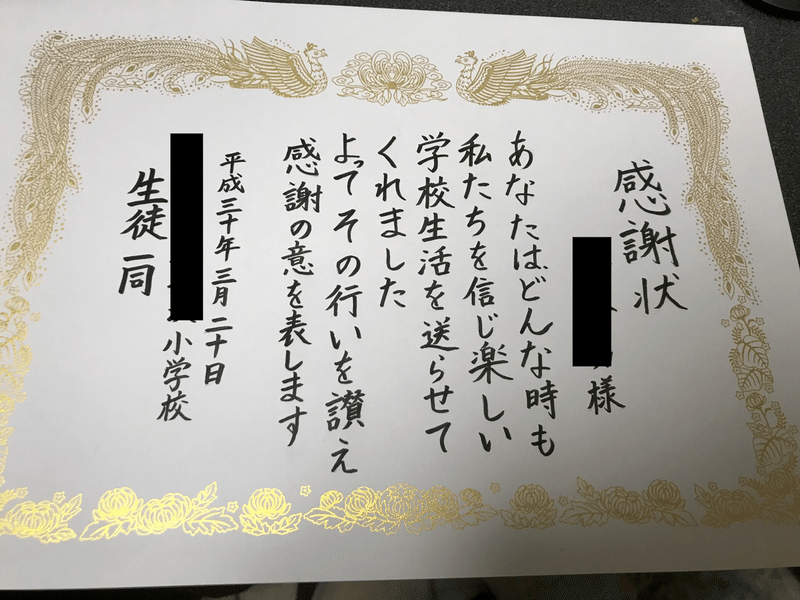 感謝状
様
あなたはどんな時も
私たちを信じ楽しい
学校生活を送らせて
くれました
よってその行いを讃え
感謝の意を表します
平成三十年三月二十日
小学校
生徒一同